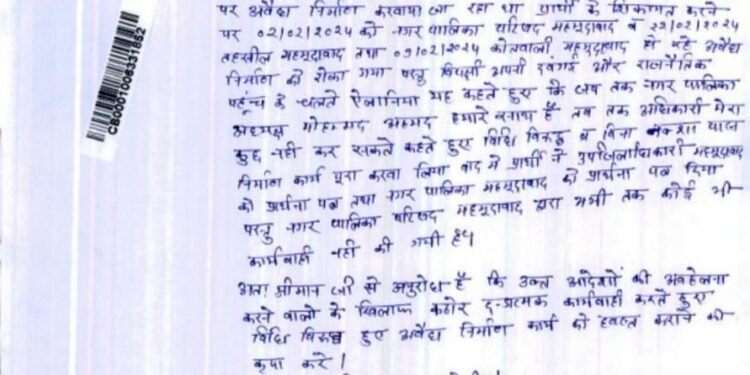 पर अवैध निर्माण करवाया जा रहा था प्रार्थी के शिकायत करने
पर 02/02/2024 को नगर पालिका परिषद महमूदाबाद व 22/02/2024
तहसील महमूदाबाद तथा 09/02/2024 कोतवाली महमूदाबाद से रहे अवैध
निर्माण को रोका गया परन्तु विपक्षी अपनी दबंगई और राजनैतिक
पहुंच के चलते ऐलानिया यह कहते हुए कि जब तक नगर पालिका
अध्यक्ष मोहम्मद अहमद हमारे साथ है तब तक अधिकारी मेरा
कुछ नही कर सकते कहते हुए विधि विरूद्ध व बिना नक्शा पास
निर्माण कार्य पूरा करवा लिया बाद मे प्रार्थी ने उपजिलाधिकारी महमूदाबाद
को प्रार्थना पत्र तथा नगर पालिका महमूदाबाद को प्रार्थना पत्र दिया
परन्तु नगर पालिका परिषद महमूदाबाद द्वारा अभी तक कोई भी
कार्यवाही नही की गयी है।
अतः श्रीमान जी से अनुरोध है कि उक्त आदेशों की अवहेलना
करने वालो के खिलाफ कठोर दण्डात्मक कार्यवाही करते हुए
विधि विरूद्ध हुए अवैध निर्माण कार्य को ध्वस्त कराने की
कृपा करे।
CB0001006331852